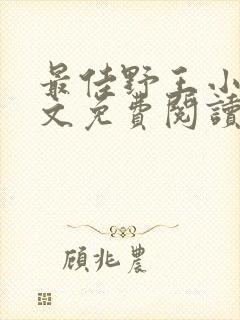 最佳野王小
文免費閱讀
顧兆農